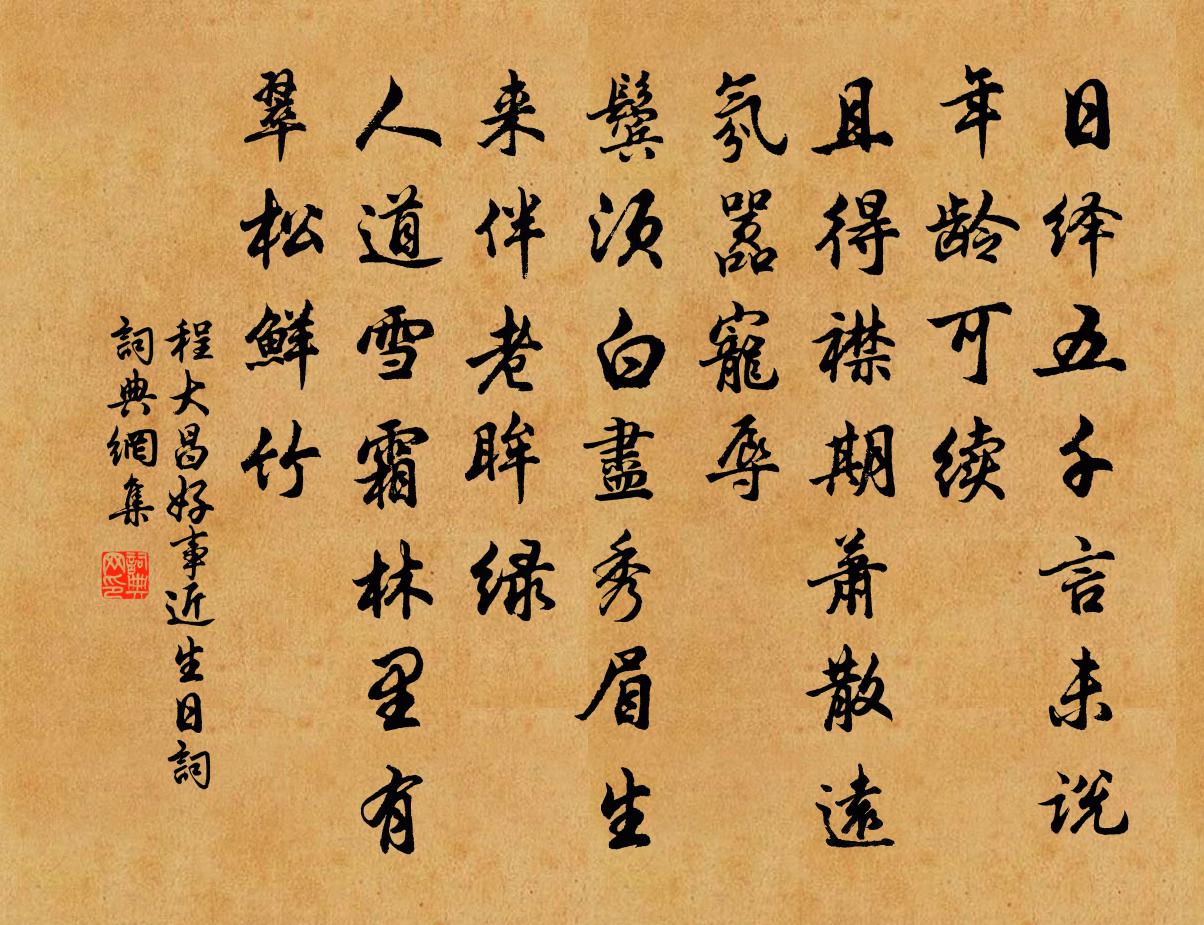 日绎五千言未说
年龄可续
且得襟期萧散遠
氛嚣寵辱
鬓须白盡秀眉生
来伴老眸绿
人道雪霜林里有
翠松鮮竹
程大昌好事近生日詞
詞典網集
詞典網印